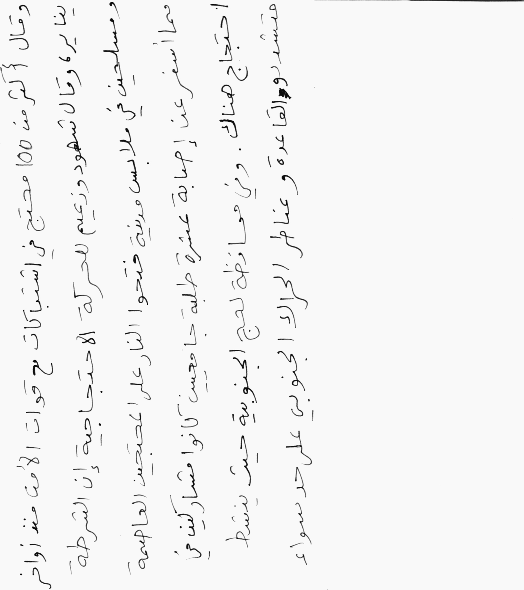 وقال أكثر من 100 محتج في اشتباكات مع قوات الأمن منذ أواخر
يناير وقال شهود وزعيم للحركة الاحتجاجية إن الشرطة
ومسلحين في ملابس مدنية فتحوا النار على المحتجين العاصمة
مما أسفر عن إصابة عشرة طلبة جامعيين كانوا مشاركين في
احتجاج هناك. وفي محافظة لحج الجنوبية حيث ينشط
متشددو القاعدة وعناصر الحراك الجنوبي على حد سواء